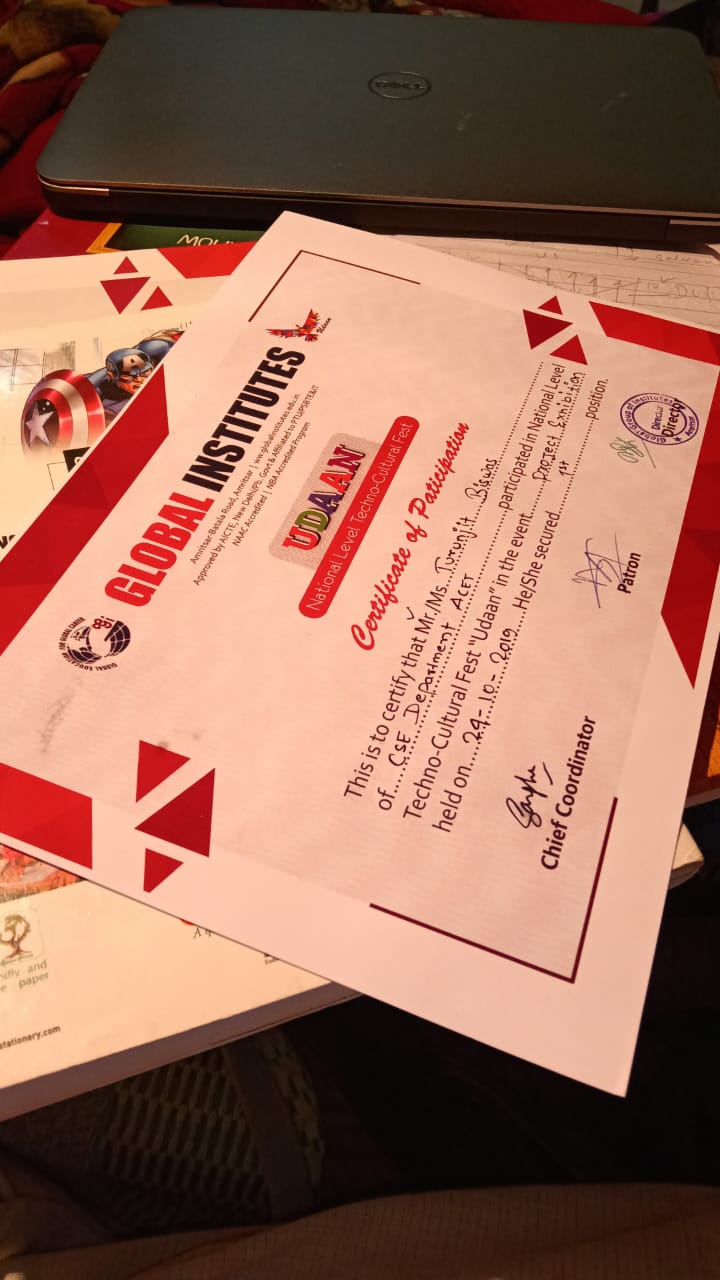 DELL
GLOBAL INSTITUTES
Amritsar Batala Road, Amritsar | ww.globalinstitutes.edu.in
Approved by AICTE, New Delhi/Pb. Govt & Affiliated to PTU/PSBTE&IT
NAAC Accredited | NBA Accredited Program
Udaan
GLOBAL EDUCATION FOR GLOBAL CAREER
UDAAN
National Level Techno-Cultural Fest
Certificate of Paticipation
This is to certify that Mr./Ms. Turonjit Biswas
of CSE Department ACET participated in National Level
Techno-Cultural Fest "Udaan" in the event Project Exhibition
held on 24-10-2019 He/She secured 1st position.
Chief Coordinator
Patron
Director
Global Group of Institutes
Director
Amritsar
A
ndly and
e paper
stationery.com